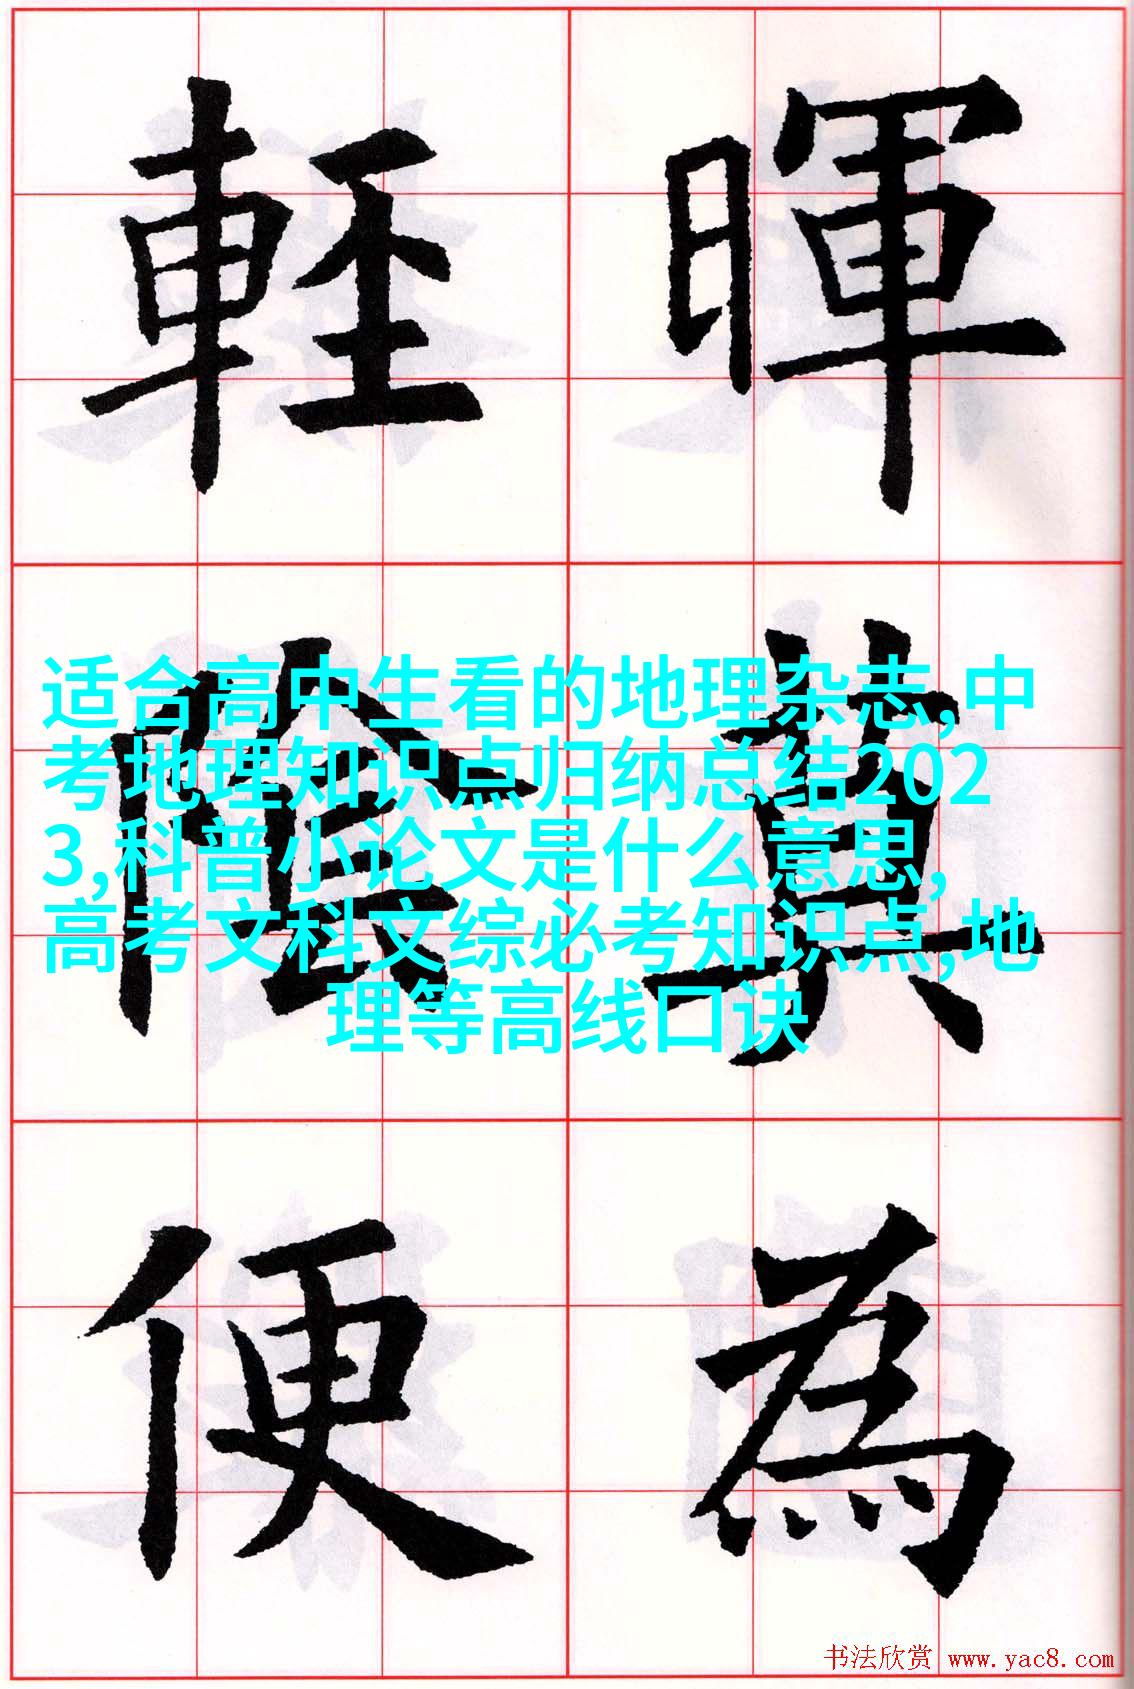 輕 暉
適合高中生看的地理杂志,中
考地理知识点归纳总结202
3,科普小论文是什么意思,
高考文科文综必考知识点,地
理等高线口诀
陰 莫
便 為
书法欣赏 www.yac8.com